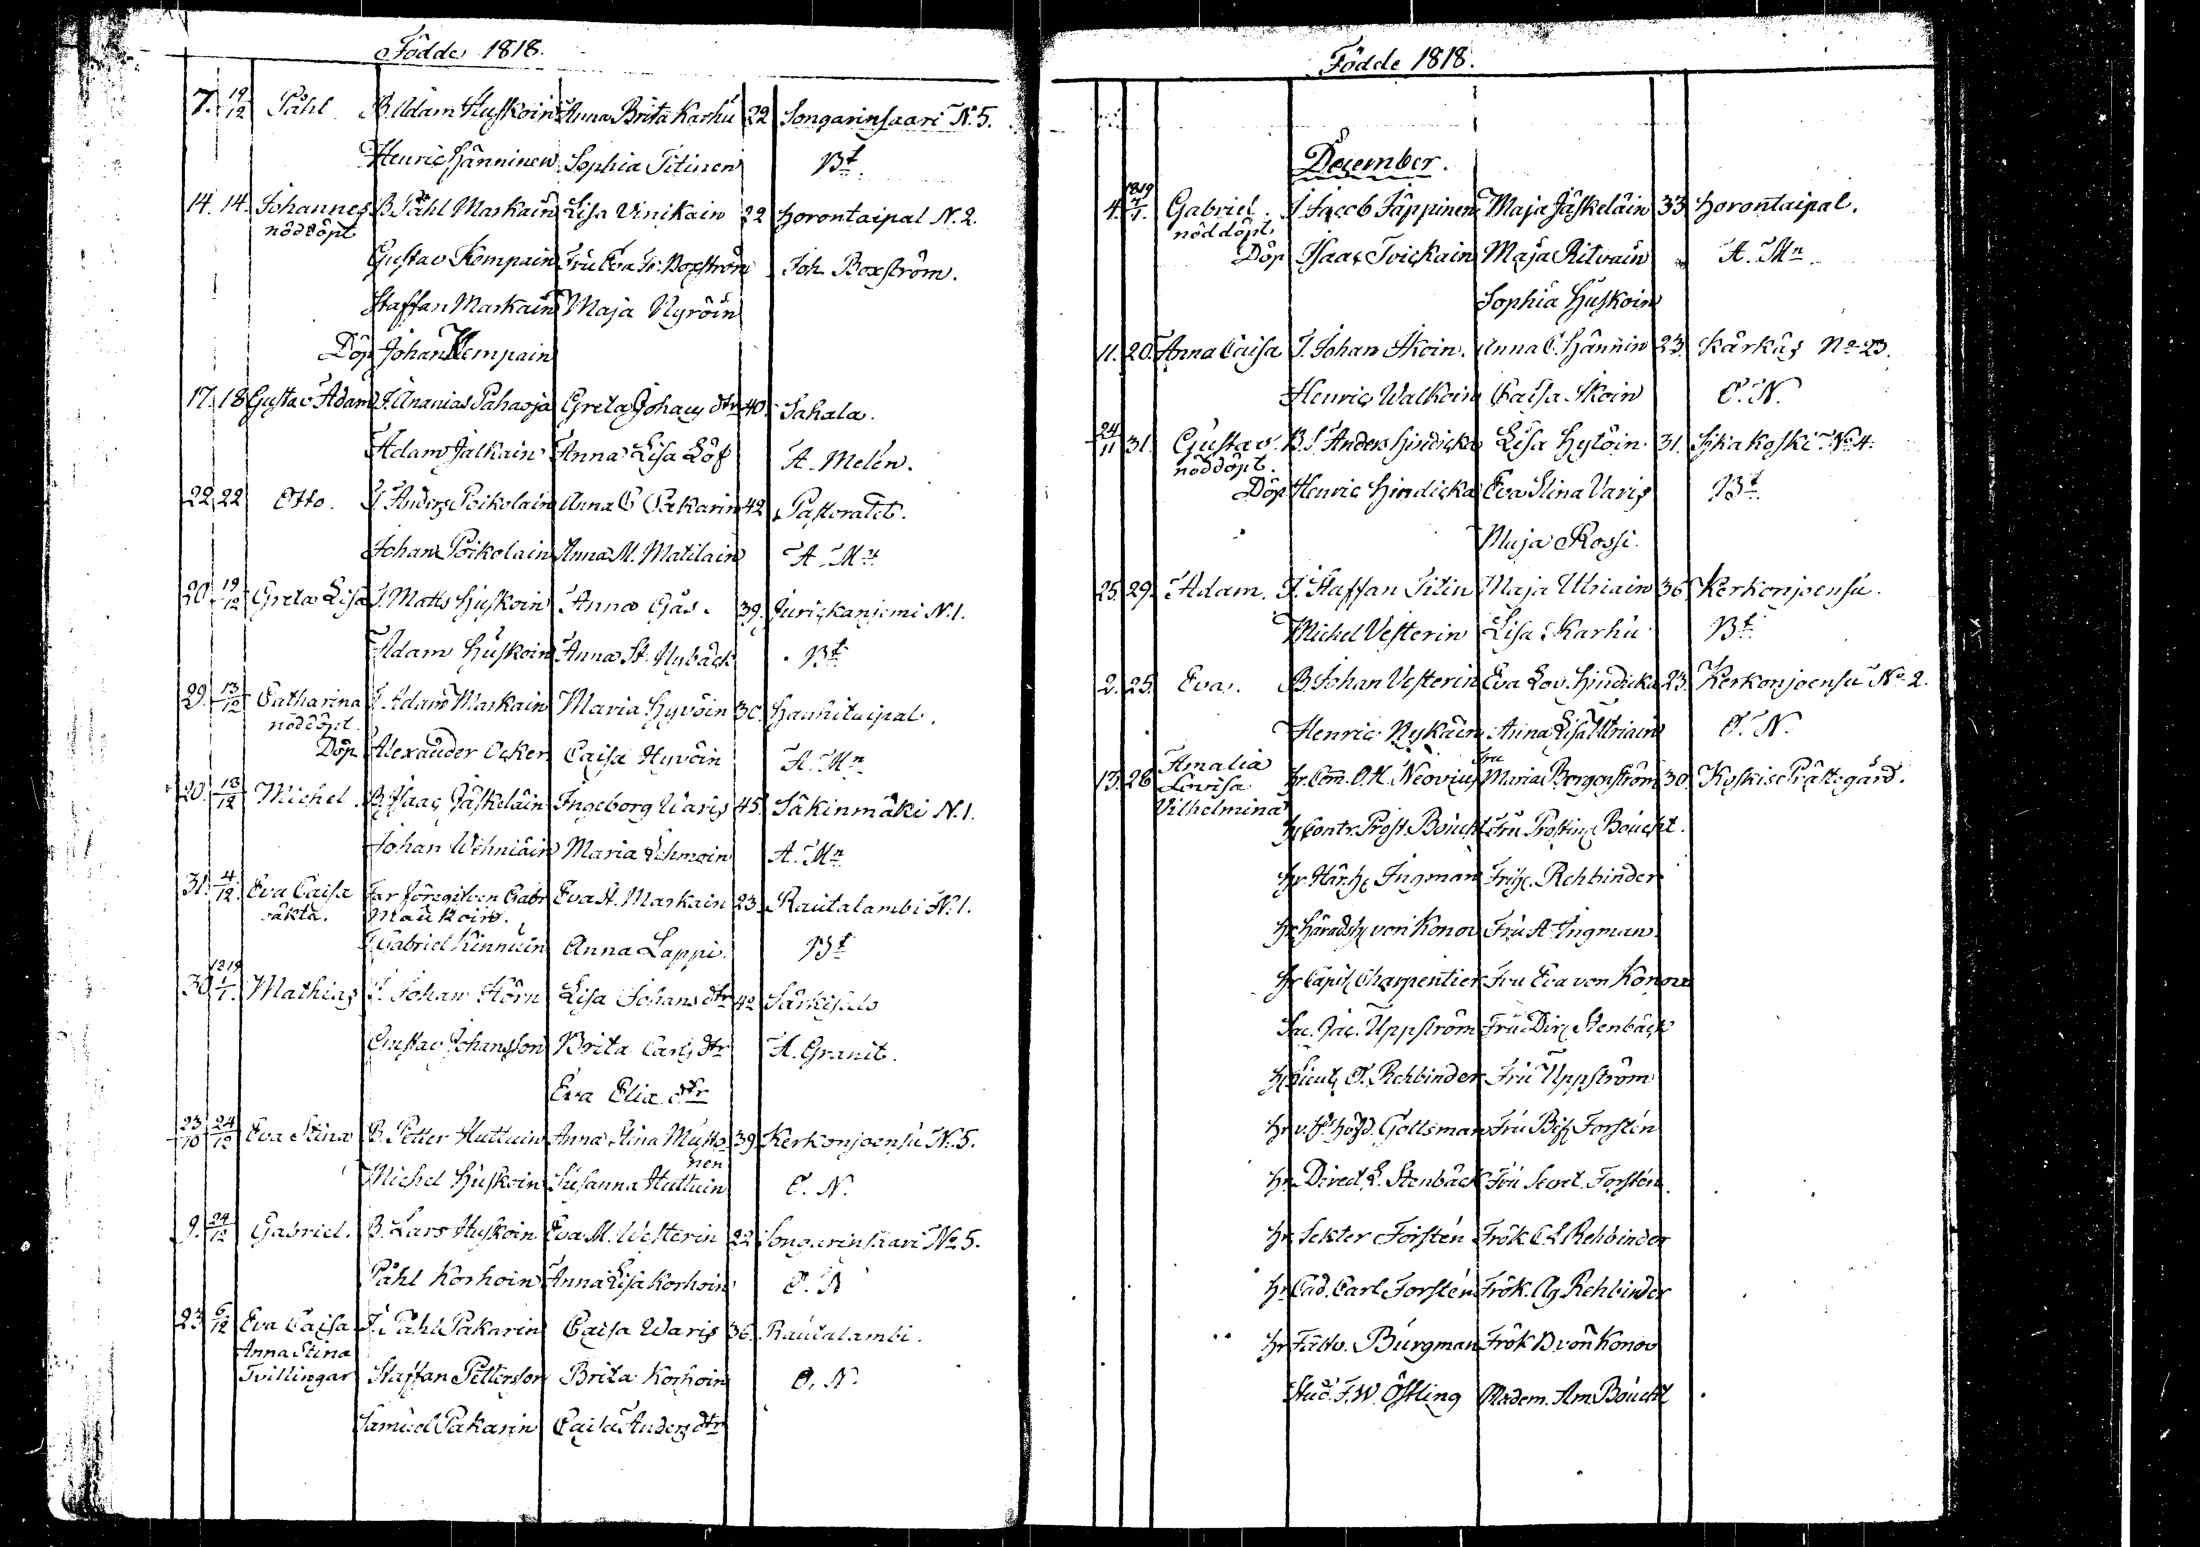 Födde 1818.
7. 19/12 Påhl B. Adam Huskoin Anna Brita Karhu 22 Songarinsaari N. 5.
Henric Hänninen Sophia Titinen Bt.
14. 14. Johannes B. Påhl Markain Lisa Vinikain 22 Horontaipal N. 2.
nöddöpt
Gustav Kempain Fru Eva Fr. Boxström Joh. Boxström.
Staffan Markain Maja Nyröin
Döp Johan Kempain
17. 18 Gustav Adam T. Ananias Pahaoja Greta Johans dtr 40. Sahala.
Adam Jalkain Anna Lisa Löf A. Melen.
22 22 Otto. T. Anders Poikolain Anna C Pakarin 42 Pastoratet.
Johan Poikolain Anna M. Matilain A. Mn
20. 19/12 Greta Lisa T. Matts Huskoin Anna Gås. 39. Jurickaniemi N. 1.
Adam Huskoin Anna St. Nybäck Bt
29. 13/12 Catharina T. Adam Markain Maria Hyvöin 30. Hankitaipal.
nöddöpt.
Döp. Alexander Ocker Caisa Hyvöin A. Mn
20. 13/12 Michel. B. Isaac Jäskeläin Ingeborg Waris 45. Säkinmäki N. 1.
Johan Wehniäin Maria Lehmoin A. Mn
31. 4/12. Eva Caisa Far föregifven Gabr Eva St. Markain 23. Rautalambi N. 1.
oäkta. Maukoin.
T. Gabriel Kinnuin Anna Lappi. Bt
1819
30 1/1. Mathias T. Johan Hörn Lisa Johans dtr 42 Särkisalo
Gustav Johansson Brita Carls dtr A. Granit.
Eva Elia dtr
23/10 24/12 Eva Stina B. Petter Huttuin Anna Stina Musto 39. Kerkonjoensu N. 5.
nen
Michel Huskoin Susanna Huttuin O. N.
9. 24/12 Gabriel. B. Lars Huskoin Eva M. Westerin 22 Songarinsaari No 5.
Påhl Korhoin Anna Lisa Korhoin O. N
23 6/12 Eva Caisa T. Påhl Pakarin Caisa Waris 36. Rautalambi.
Anna Stina
Tvillingar Staffan Pettersson Brita Korhoin O. N.
Samuel Pakarin Caisa Anders dtr
Födde 1818.
December.
1819
4. 1/1. Gabriel. I. Jacob Jäppinen Maja Jäskeläin 33 Horontaipal.
nöddöpt.
Döp Isaac Toickain Maja Ritvain A. Mn.
Sophia Huskoin
11. 20. Anna Caisa T. Johan Ikoin. Anna C. Hännin 23. Kärkäs No 23.
Henric Walkoin Caisa Ikoin O. N.
24/11 31. Gustav. B. S. Anders Hindicka Lisa Hytöin 31. Sikakoski No 4.
nöddöpt.
Döp Henric Hindicka Eva Stina Varis Bt.
Maja Rossi.
25. 29. Adam. T. Staffan Titin Maja Utriain 36 Kerkonjoensu.
Michel Vesterin Lisa Karhu Bt
2. 25. Eva. B. Johan Vesterin Eva Lov. Hindicka 23. Kerkonjoensu No 2.
Henric Nykäin Anna Lisa Utriain O. N.
13. 26 Amalia Hr. Com. O. H. Neovius Fru Maria Bergenström 30. Koskis Prästegård.
Lovisa
Vilhelmina
Hr Contr. Prost. Boucht Fru Prostin Boucht.
Hr. Här. h. Ingman Frih. Rehbinder
Hr. Häradsh von Konow Fru A. Ingman.
Hr Capit. Charpentier Fru Eva von Konow
Sac. Jac. Uppström Fru Dir. Stenbäck
Hr Lieut. O. Rehbinder Fru Uppström
Hr v. Hofd. Goltsman Fru Bis. Forstén
Hr. Direct. L. Stenbäck Fru Secret. Forstén.
Hr. Lekter Forstén Frök. C. L Rehbinder
Hr Cad. Carl Forstén Frök. Ag. Rehbinder
Hr Fältv. Burgman Frök B von Konow
Stud. F. W. Östling Madem. Am. Boucht